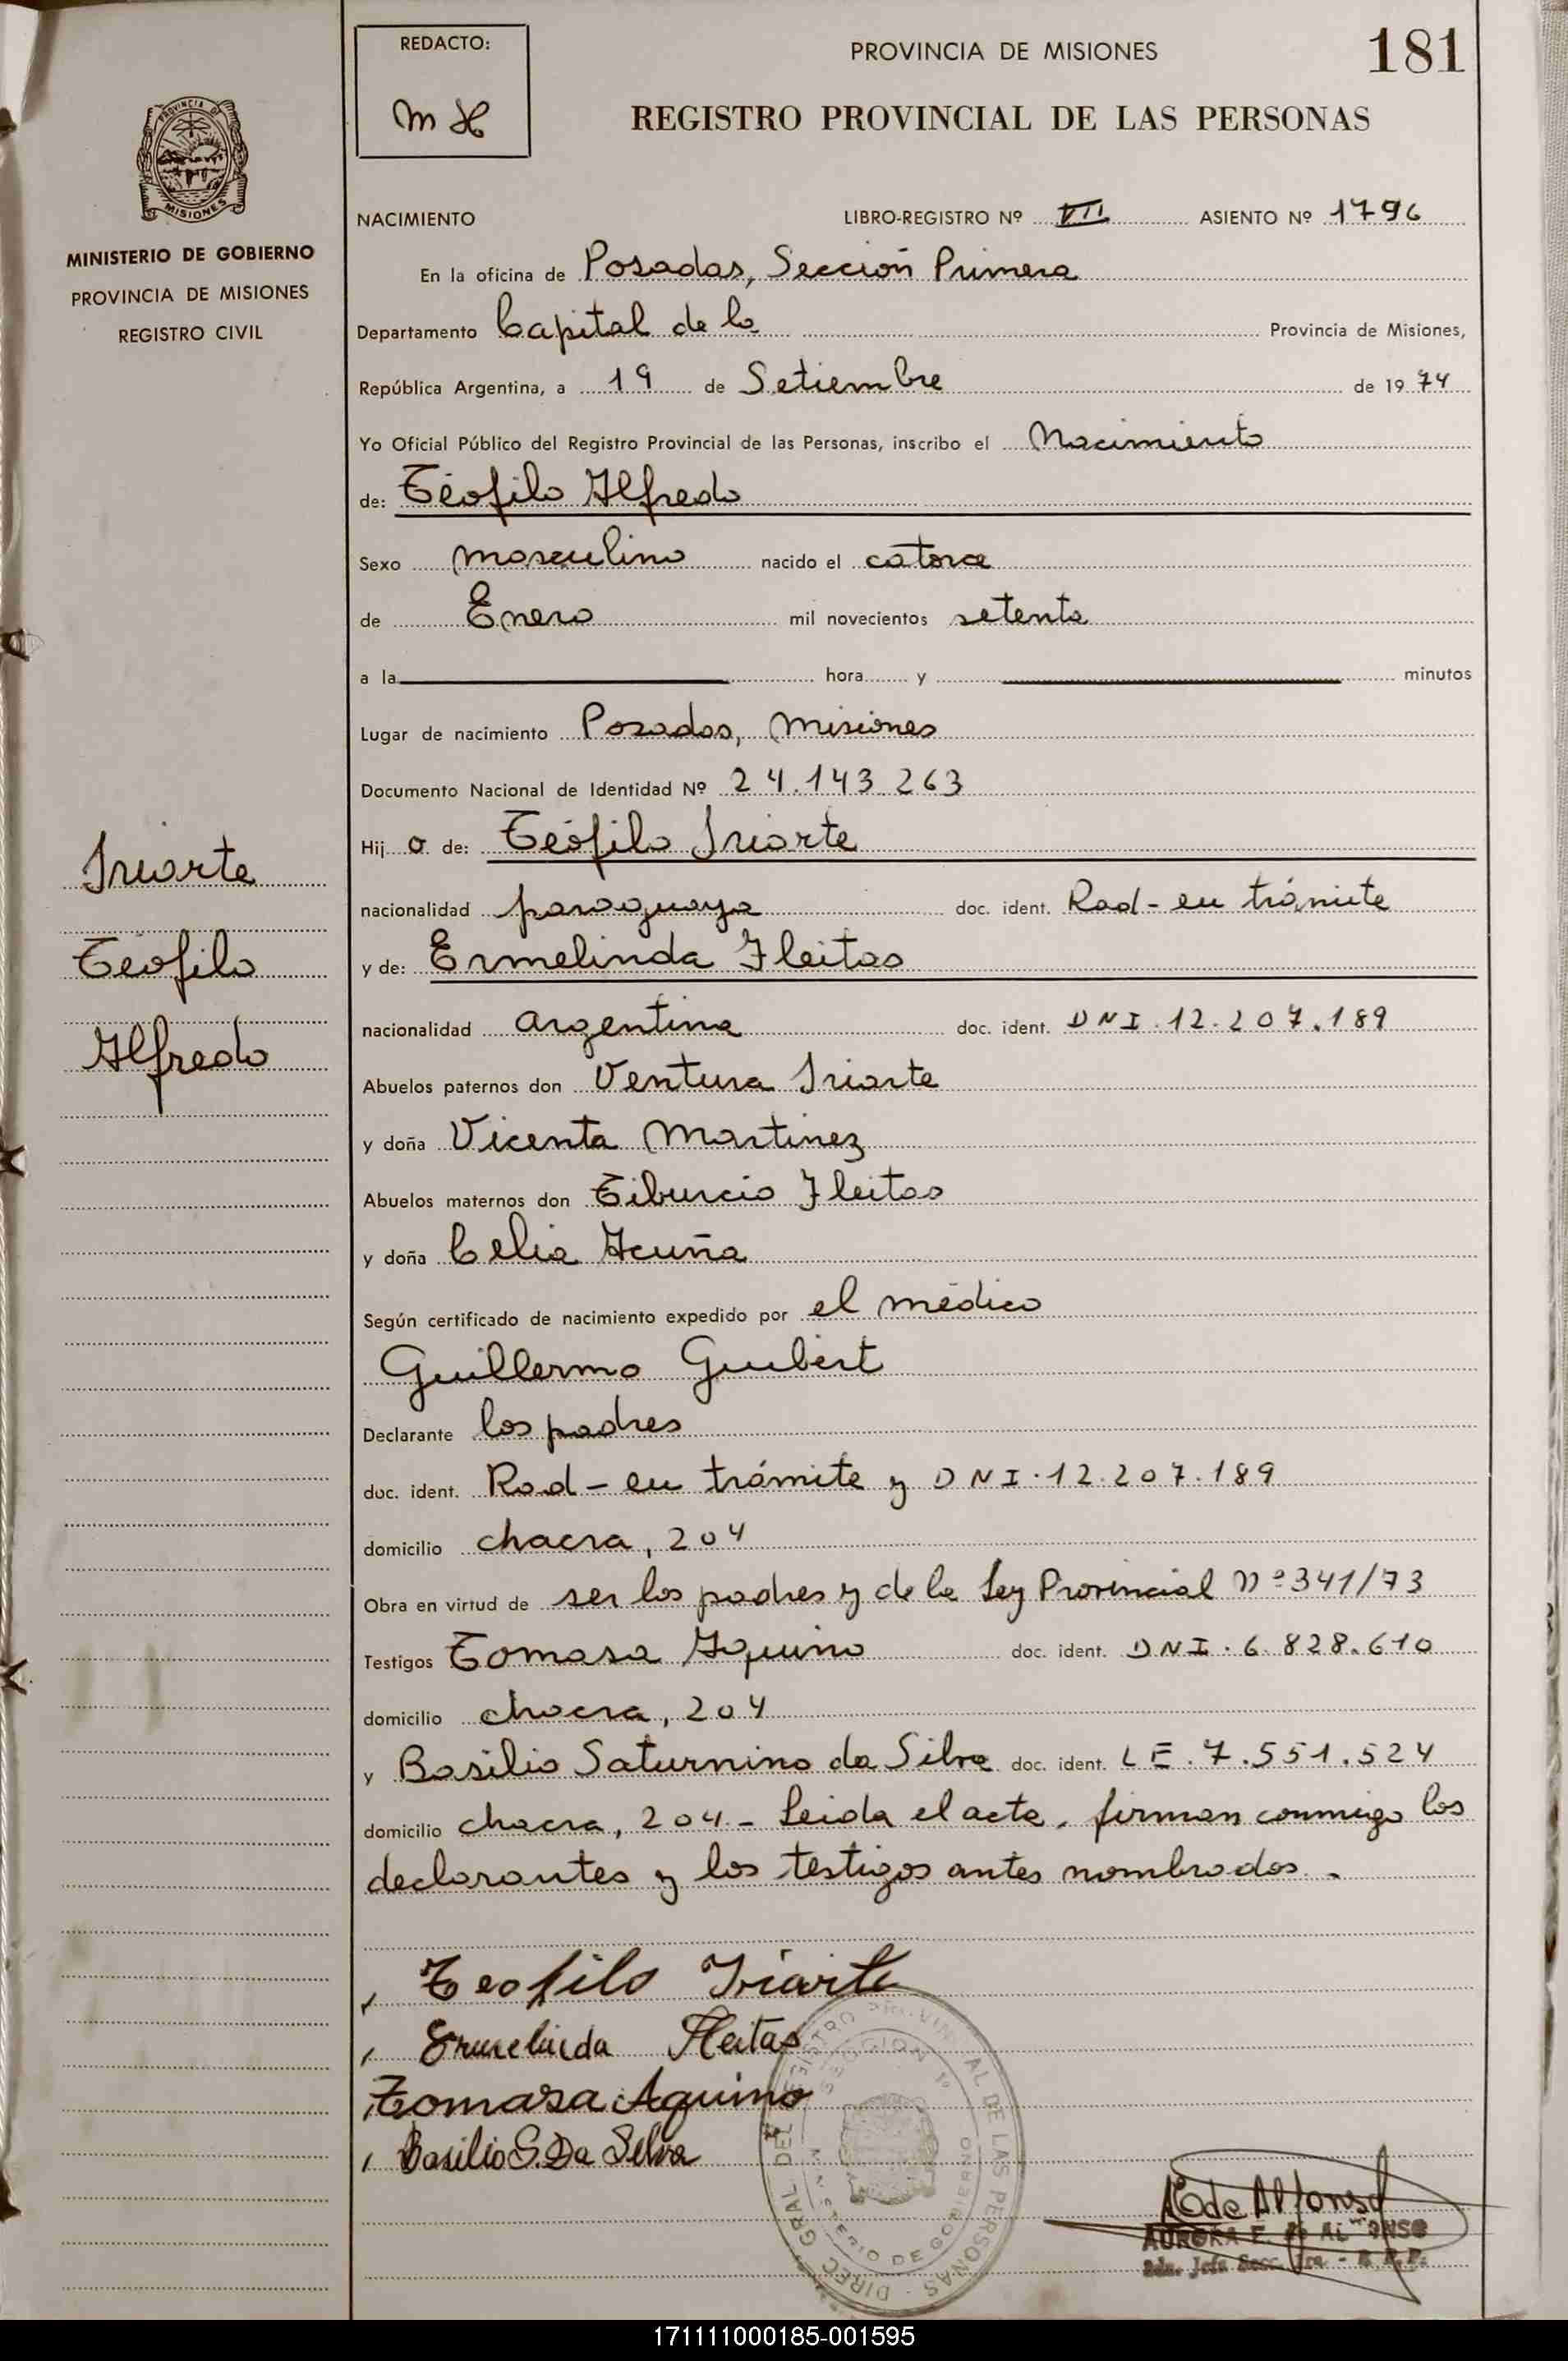 REDACTO:
M H
PROVINCIA DE MISIONES
181
REGISTRO PROVINCIAL DE LAS PERSONAS
MISIONES
MINISTERIO DE GOBIERNO
PROVINCIA DE MISIONES
REGISTRO CIVIL
NACIMIENTO LIBRO-REGISTRO Nº VII ASIENTO Nº 1796
En la oficina de Posadas, Sección Primera
Departamento Capital de la Provincia de Misiones,
República Argentina, a 19 de Setiembre de 1974
Yo Oficial Público del Registro Provincial de las Personas, inscribo el Nacimiento
de: Teófilo Alfredo
Sexo masculino nacido el catorce
de Enero mil novecientos setenta
a la hora y minutos
Lugar de nacimiento Posadas, Misiones
Documento Nacional de Identidad Nº 24.143.263
Hijo de: Teófilo Iriarte
nacionalidad paraguaya doc. ident. Rad - en trámite
y de: Ermelinda Fleitas
nacionalidad argentina doc. ident. DNI.12.207.189
Abuelos paternos don Ventura Iriarte
y doña Vicenta Martinez
Abuelos maternos don Tiburcio Fleitas
y doña Celia Acuña
Según certificado de nacimiento expedido por el médico
Guillermo Guibert
Declarante los padres
doc. ident. Rad - en trámite y DNI.12.207.189
domicilio chacra, 204
Obra en virtud de ser los padres y de la Ley Provincial Nº 341/73
Testigos Tomasa Aquino doc. ident. DNI.6.828.610
domicilio chacra, 204
y Basilio Saturnino da Silva doc. ident. LE.7.551.524
domicilio chacra, 204 - Leida el acta, firman conmigo los
declarantes y los testigos antes nombrados.
Iriarte
Teófilo
Alfredo
Teofilo Iriarte
Ermelinda Fleitas
Tomasa Aquino
Basilio S. Da Silva
DIREC. GRAL. DEL REGISTRO PROVINCIAL DE LAS PERSONAS
SECCION 1º
MINISTERIO DE GOBIERNO
E de Alfonso
AURORA E. de ALFONSO
2da. Jefa Secc. 1ra - R.P.P.
171111000185-001595